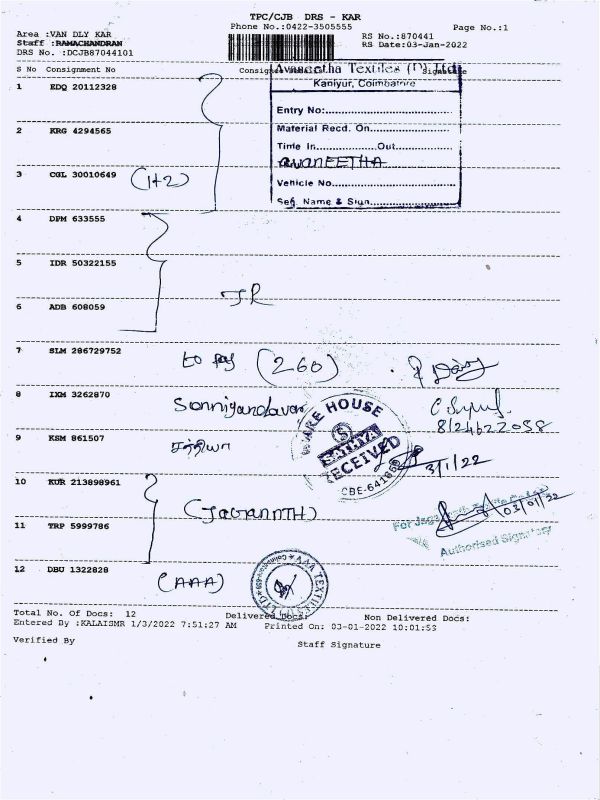 TPC/CJB DRS - KAR
Phone No.:0422-3505555
Page No.:1
Area :VAN DLY KAR
Staff :RAMACHANDRAN
DRS No. :DCJB87044101
RS No.:870441
RS Date:03-Jan-2022
S No Consignment No
Avaneetha Textiles (P) Ltd
Kaniyur, Coimbatore
1 EDQ 20112328
Entry No:
2 KRG 4294565
Material Recd. On
Time In Out
AVANEETHA
3 CGL 30010649 (1+2)
Vehicle No
Sec. Name & Sign
4 DPM 633555
5 IDR 50322155
JR
6 ADB 608059
7 SLM 286729752 to pay (260)
8 IXM 3262870
WARE HOUSE
9 KSM 861507 சத்தியா
RECEIVED
CBE-641
3/1/22
10 KUR 213898961
(JAGANNTH)
03/01/22
11 TRP 5999786
Authorised Signatory
12 DBU 1322828 (AAA)
AAA TEXTILES
Total No. Of Docs: 12 Delivered Docs: Non Delivered Docs:
Entered By :KALAISMR 1/3/2022 7:51:27 AM Printed On: 03-01-2022 10:01:53
Verified By Staff Signature